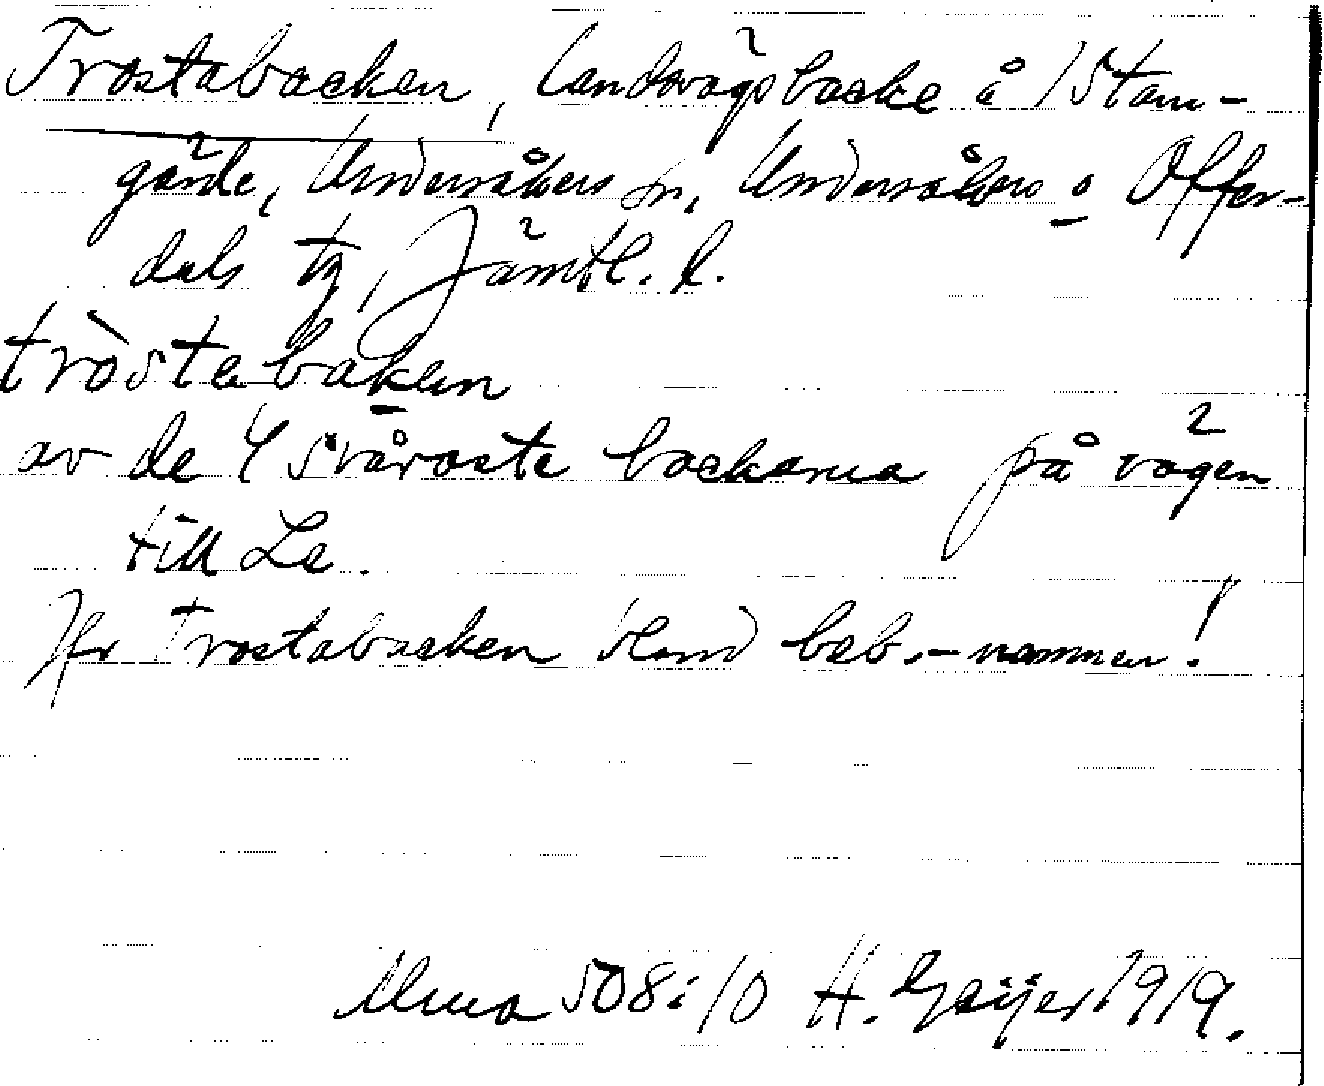 Trostabacken, landsvägsbacke å Stam-
gärde, Undersåkers sn, Undersåkers o Offer-
dals tg, Jämtl. l.
tròstebaken
av de 4 svåraste backarna på vägen
till Le.
Jfr Trostabacken bland beb.-namnen!
Uma 508:10 H. Geijer 1919.